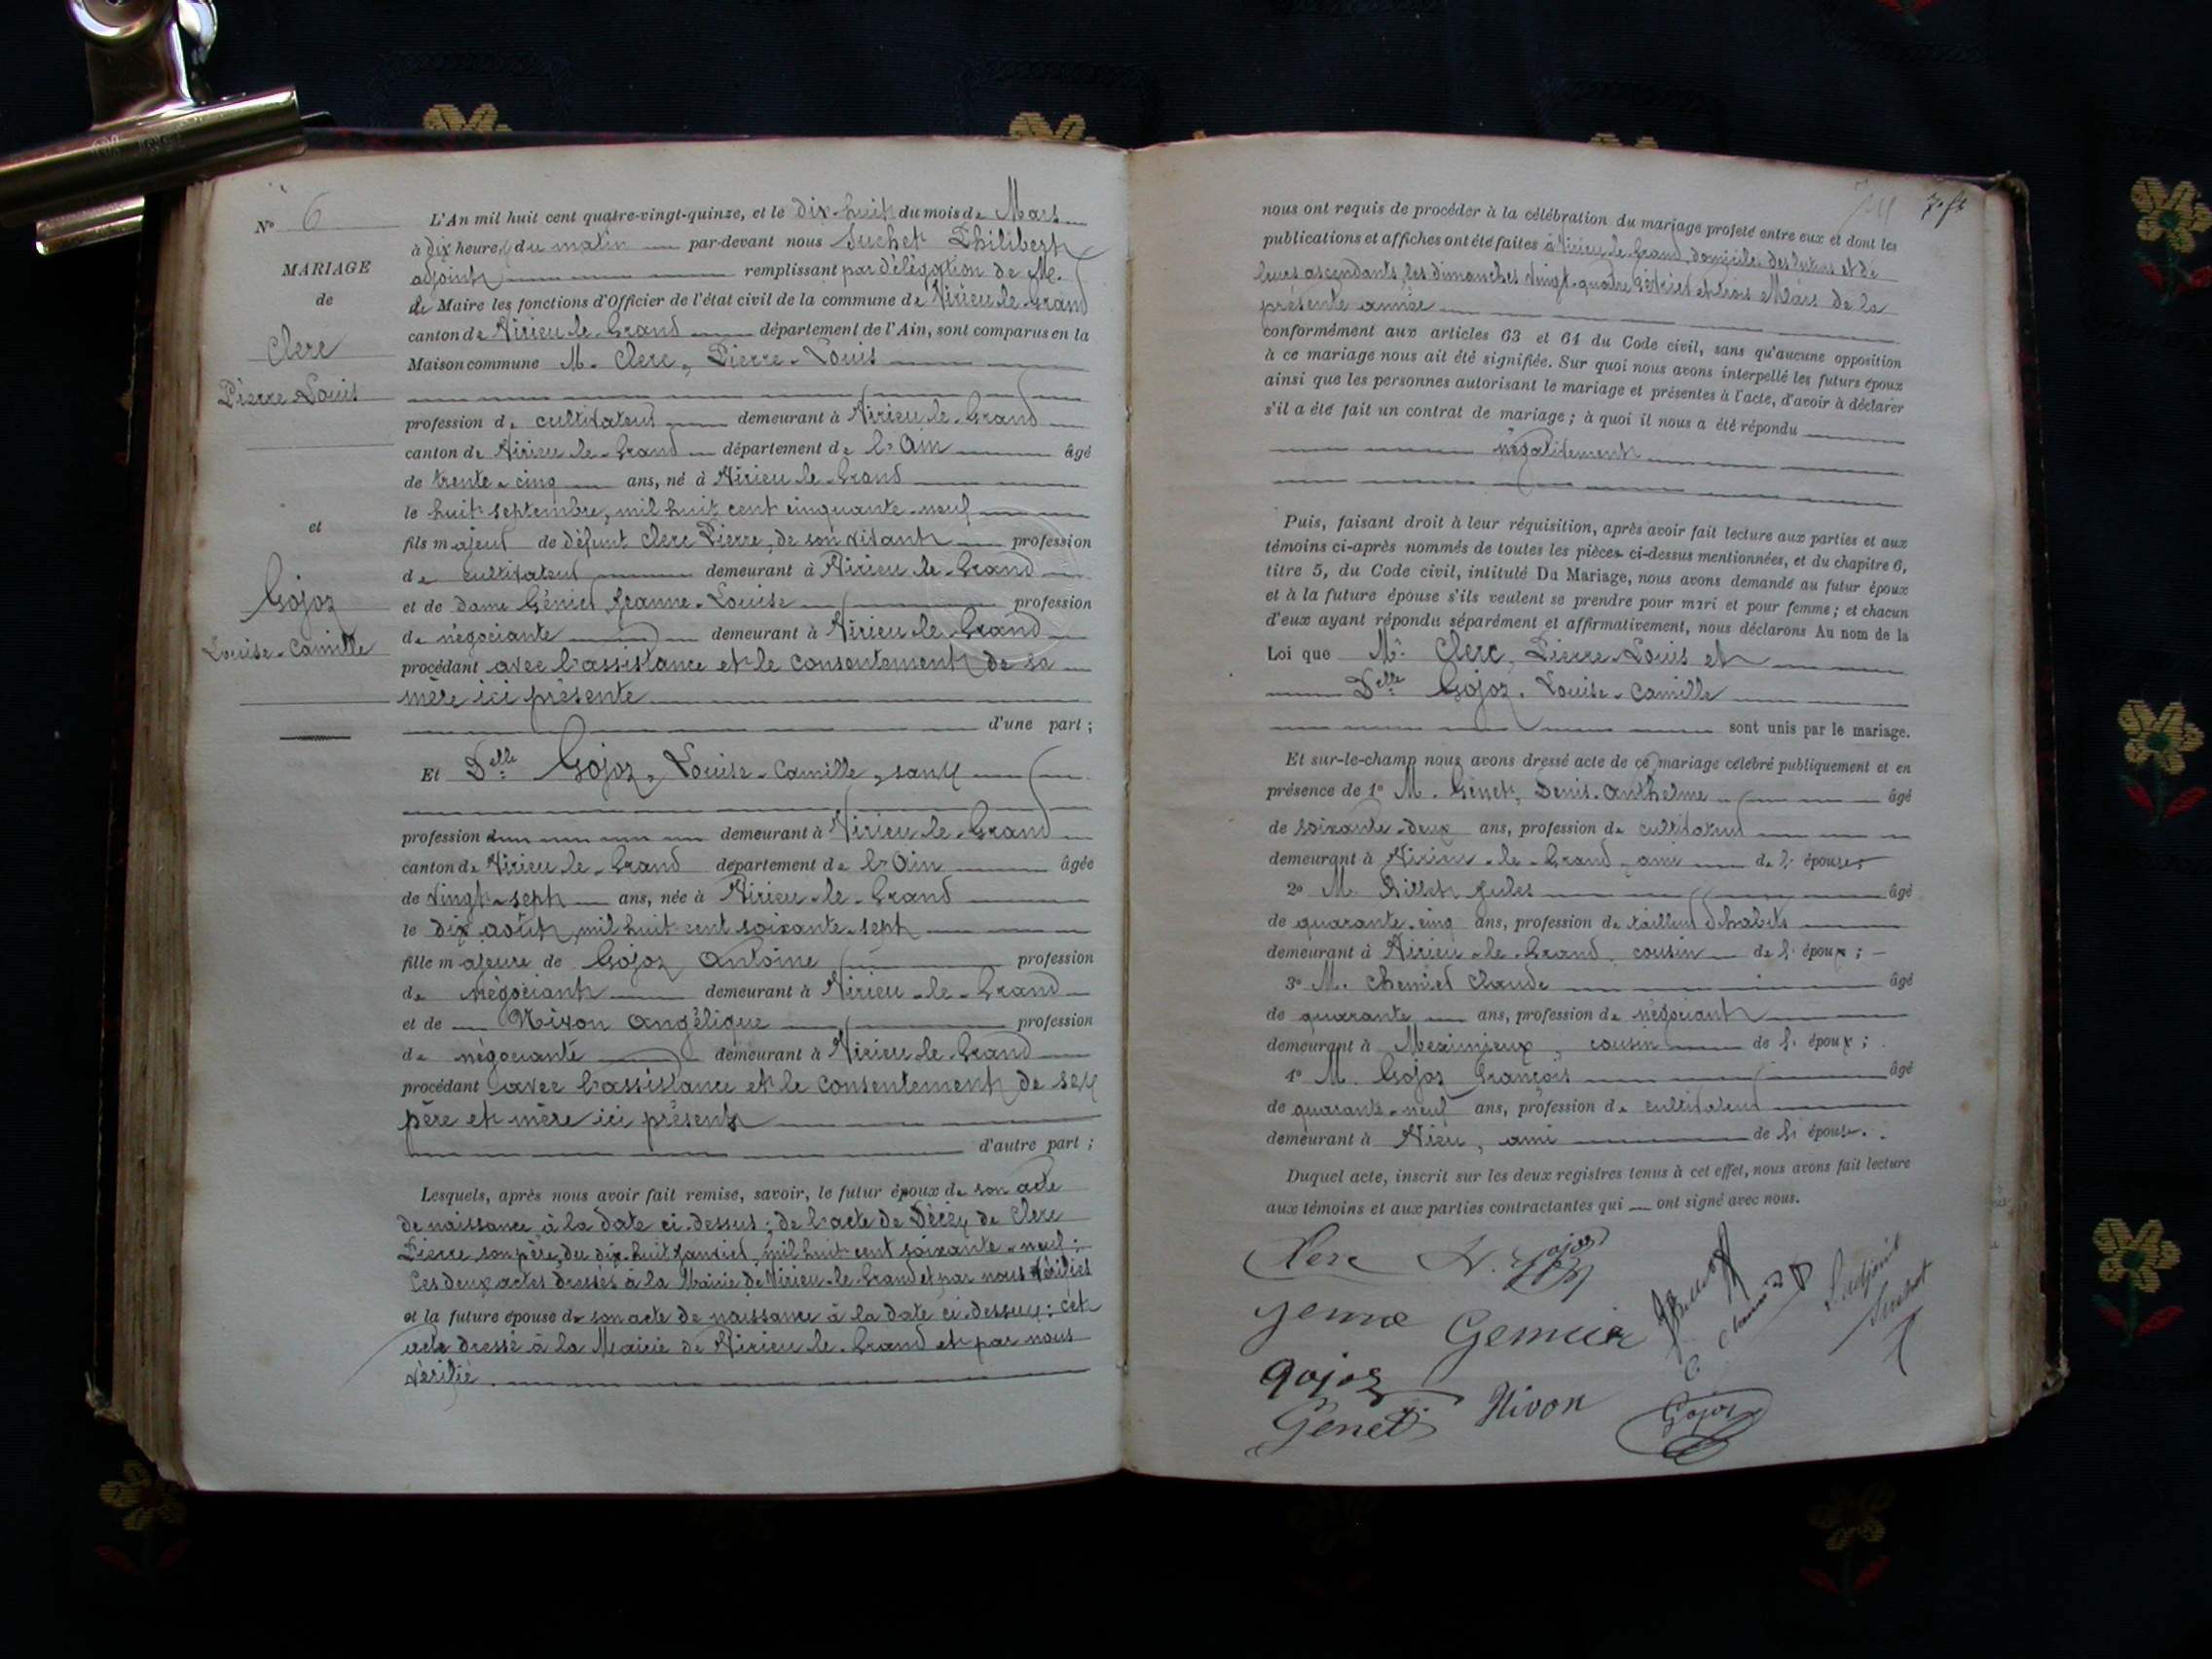 N° 6
MARIAGE
de
Clerc
Pierre-Louis
et
Gojoz
Louise-Camille
L'An mil huit cent quatre-vingt-quinze, et le dix-huit du mois de Mars
à dix heures du matin par-devant nous Suchet Philibert
adjoint remplissant par délégation de M.
le Maire les fonctions d'Officier de l'état civil de la commune de Virieu-le-Grand
canton de Virieu-le-Grand département de l'Ain, sont comparus en la
Maison commune M. Clerc, Pierre-Louis
profession de cultivateur demeurant à Virieu-le-Grand
canton de Virieu-le-Grand département de l'Ain âgé
de trente-cinq ans, né à Virieu-le-Grand
le huit septembre, mil huit cent cinquante-neuf
fils majeur de défunt Clerc Pierre, de son vivant profession
de cultivateur demeurant à Virieu-le-Grand
et de dame Jeanne-Louise profession
de négociante demeurant à Virieu-le-Grand
procédant avec l'assistance et le consentement de sa
mère ici présente
d'une part ;
Et Delle Gojoz, Louise-Camille, sans
profession demeurant à Virieu-le-Grand
canton de Virieu-le-Grand département de l'Ain âgée
de vingt-sept ans, née à Virieu-le-Grand
le dix août, mil huit cent soixante-sept
fille majeure de Gojoz Antoine profession
de négociant demeurant à Virieu-le-Grand
et de Nivon Angélique profession
de négociante demeurant à Virieu-le-Grand
procédant avec l'assistance et le consentement de ses
père et mère ici présents
d'autre part ;
Lesquels, après nous avoir fait remise, savoir, le futur époux de son acte
de naissance à la date ci-dessus ; de l'acte de décès de Clerc
Pierre son père, du dix-huit janvier, mil huit cent soixante-neuf ;
Ces deux actes dressés à la Mairie de Virieu-le-Grand et par nous vérifiés
et la future épouse de son acte de naissance à la date ci-dessus : cet
acte dressé à la Mairie de Virieu-le-Grand et par nous
vérifié.
nous ont requis de procéder à la célébration du mariage projeté entre eux et dont les
publications et affiches ont été faites à Virieu-le-Grand, domicile des futurs et de
leurs ascendants, les dimanches vingt-quatre février et trois Mars de la
présente année
conformément aux articles 63 et 64 du Code civil, sans qu'aucune opposition
à ce mariage nous ait été signifiée. Sur quoi nous avons interpellé les futurs époux
ainsi que les personnes autorisant le mariage et présentes à l'acte, d'avoir à déclarer
s'il a été fait un contrat de mariage ; à quoi il nous a été répondu
négativement
Puis, faisant droit à leur réquisition, après avoir fait lecture aux parties et aux
témoins ci-après nommés de toutes les pièces ci-dessus mentionnées, et du chapitre 6,
titre 5, du Code civil, intitulé Du Mariage, nous avons demandé au futur époux
et à la future épouse s'ils veulent se prendre pour mari et pour femme ; et chacun
d'eux ayant répondu séparément et affirmativement, nous déclarons Au nom de la
Loi que Mr. Clerc, Pierre-Louis et
Delle Gojoz, Louise-Camille
sont unis par le mariage.
Et sur-le-champ nous avons dressé acte de ce mariage célébré publiquement et en
présence de 1° M. Genet, Denis-Anthelme âgé
de soixante-deux ans, profession de cultivateur
demeurant à Virieu-le-Grand, ami de l'épouse
2° M. Billet Jules âgé
de quarante-cinq ans, profession de tailleur d'habits
demeurant à Virieu-le-Grand, cousin de l'époux ;
3° M. Claude âgé
de quarante ans, profession de négociant
demeurant à Meximieux, cousin de l'époux ;
4° M. Gojoz François âgé
de quarante-neuf ans, profession de cultivateur
demeurant à Vieu, ami de l'épouse.
Duquel acte, inscrit sur les deux registres tenus à cet effet, nous avons fait lecture
aux témoins et aux parties contractantes qui ont signé avec nous.
Clerc
gojoz
Nivon
Genet
Gojoz